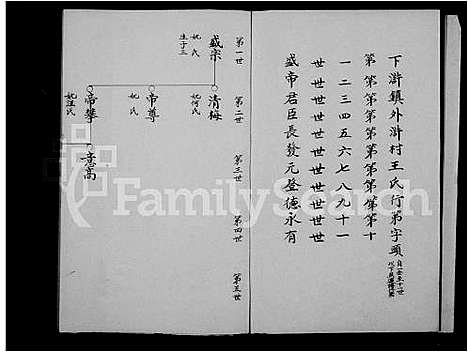 下滸鎮外滸村王氏行弟字頭
第第第第第第第第第第十
一二三四五六七八九十一
世世世世世世世世世世世
盛帝君臣長發元登德永有
第一世
第二世
第三世
第四世
第五世
盛宗
妣 氏
生子三
清梅
妣何氏
帝尊
妣 氏
帝攀
妣汪氏
意高
FamilySearch